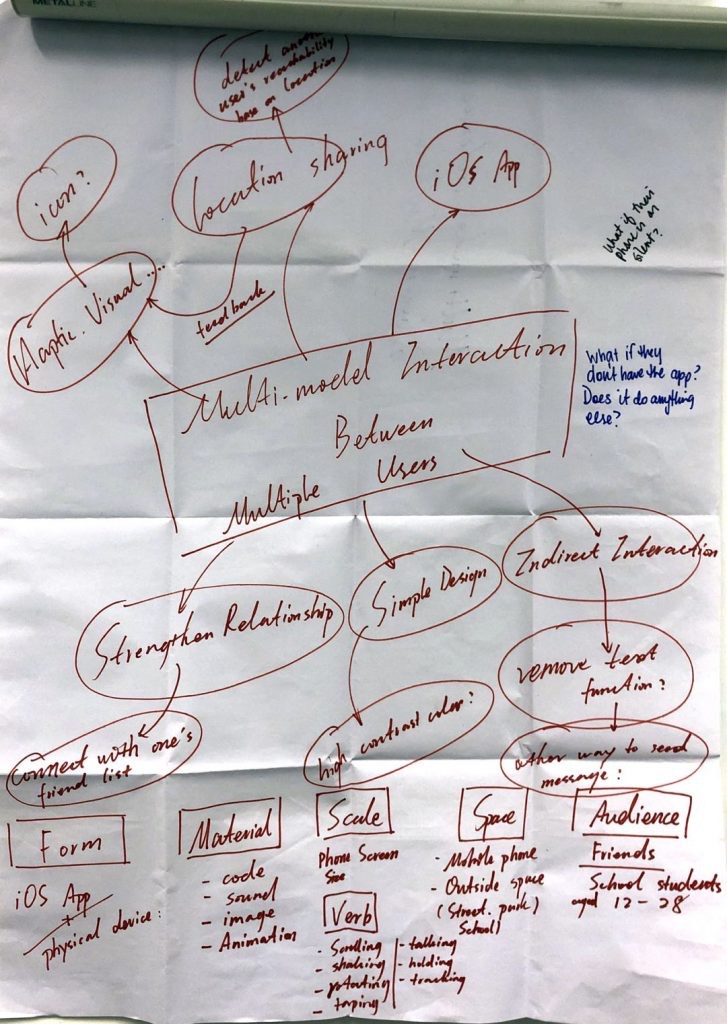 METALLINE
detect another
user's reachability
base on location
icon?
Location sharing
iOS App
What if their
phone is on
silent?
Haptic. Visual.....
feedback
Multi-model Interaction
Between
Multiple Users
What if they
don't have the app?
Does it do anything
else?
Strengthen Relationship
Simple Design
Indirect Interaction
connect with one's
friend list
high contrast color?
remove text
function?
other way to send
message?
Form
iOS App
+
physical device?
Material
- code
- sound
- image
- Animation
Scale
Phone Screen
Size
Verb
- Scrolling
- shaking
- rotating
- taping
- talking
- holding
- tracking
Space
- Mobile phone
- Outside space
(Street. park)
School)
Audience
Friends
School students
aged 12-28